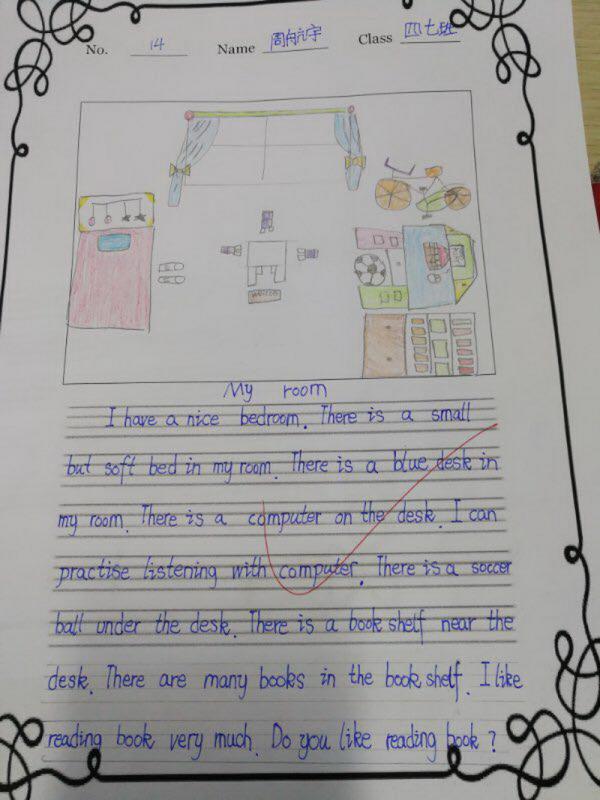 No. 14 Name 周 宇 Class 四七班
My room
I have a nice bedroom. There is a small
but soft bed in my room. There is a blue desk in
my room. There is a computer on the desk. I can
practise listening with computer. There is a soccer
ball under the desk. There is a book shelf near the
desk. There are many books in the book shelf. I like
reading book very much. Do you like reading book?